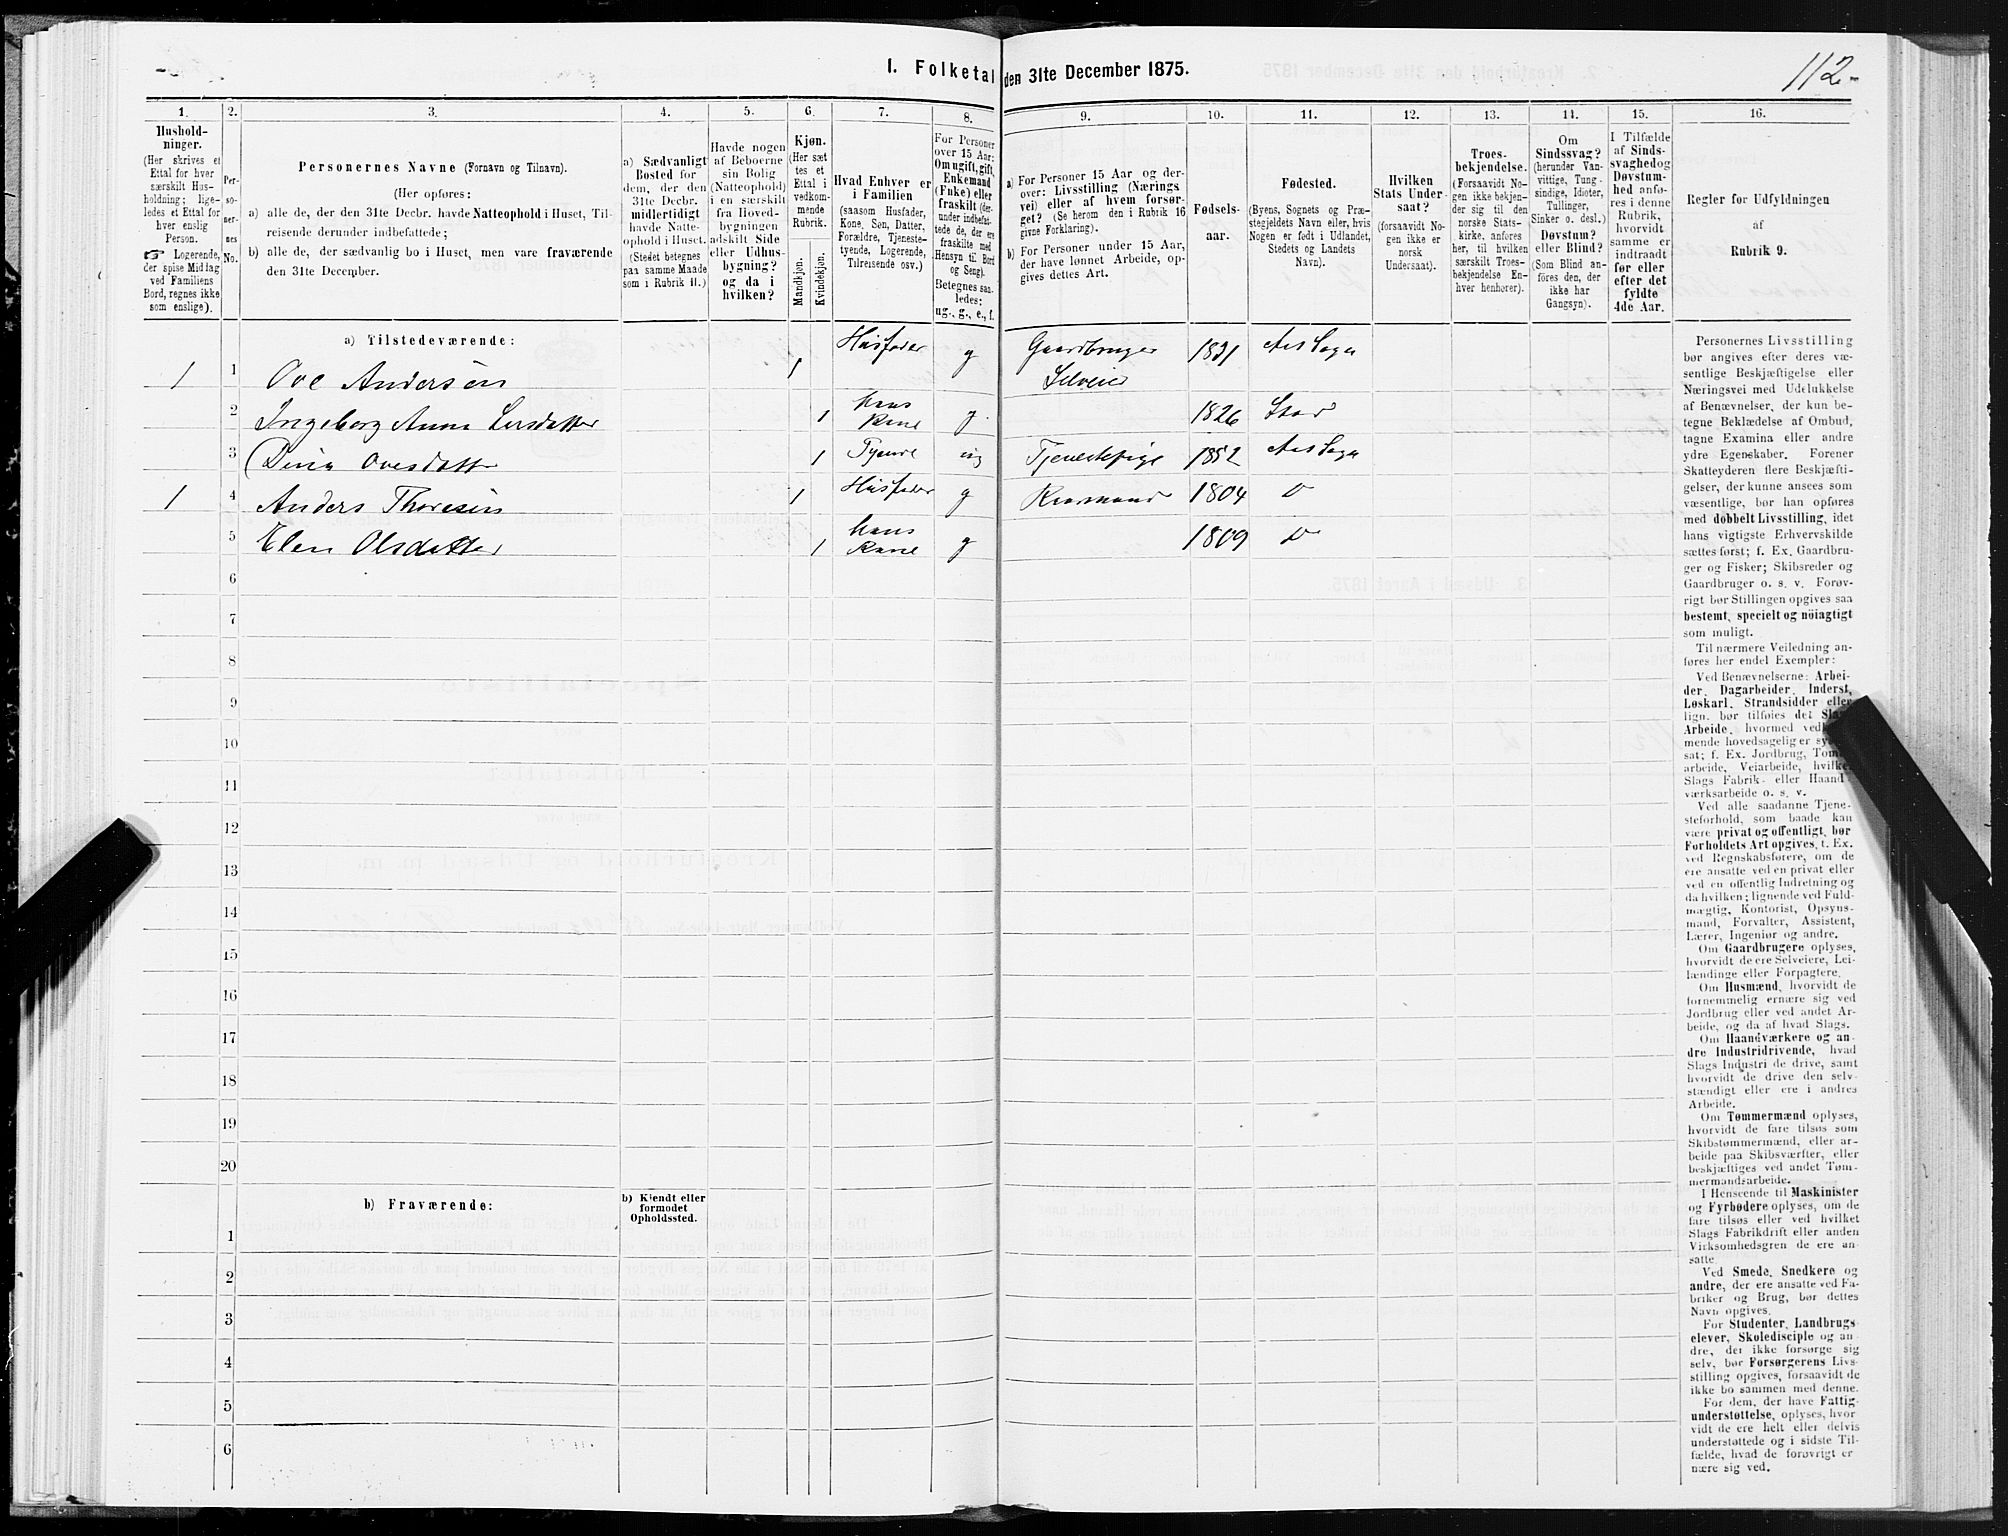 I. Folketal den 31te December 1875.
112-
1.
Hushold-
ninger.
(Her skrives et
Ettal for hver
særskilt Hus-
holdning; lige-
ledes et Ettal for
hver enslig
Person.
☞ Logerende,
der spise Middag
ved Familiens
Bord, regnes ikke
som enslige).
2.
Per-
so-
ner-
nes
No.
3.
Personernes Navne (Fornavn og Tilnavn).
(Her opføres:
a) alle de, der den 31te Decbr. havde Natteophold i Huset, Til-
reisende derunder indbefattede;
b) alle de, der sædvanlig bo i Huset, men vare fraværende
den 31te December.
4.
a) Sædvanligt
Bosted for
dem, der den
31te Decbr.
midlertidigt
havde Natte-
ophold i Huset.
(Stedet betegnes
paa samme Maade
som i Rubrik 11.)
5.
Havde nogen
af Beboerne
sin Bolig
(Natteophold)
i en særskilt
fra Hoved-
bygningen
adskilt Side
eller Udhus-
bygning?
og da i
hvilken?
6.
Kjøn.
(Her sæt
tes et
Ettal i
vedkom-
mende
Rubrik.
Mandkjøn.
Kvindekjøn.
7.
Hvad Enhver er
i Familien
(saasom Husfader,
Kone, Søn, Datter,
Forældre, Tjeneste-
tyende, Logerende,
Tilreisende osv.)
8.
For Personer
over 15 Aar:
Om ugift, gift,
Enkemand
(Enke) eller
fraskilt (der-
under indbefat-
tede de, der ere
fraskilte med
Hensyn til Bord
og Seng).
Betegnes saa-
ledes:
ug., g., e., f.
9.
a) For Personer 15 Aar og der-
over: Livsstilling (Nærings
vei) eller af hvem forsør-
get? (Se herom den i Rubrik 16
givne Forklaring).
b) For Personer under 15 Aar,
der have lønnet Arbeide, op-
gives dettes Art.
10.
Fødsels-
aar.
11.
Fødested.
(Byens, Sognets og Præ-
stegjeldets Navn eller, hvis
Nogen er født i Udlandet,
Stedets og Landets
Navn).
12.
Hvilken
Stats Under-
saat?
(forsaavidt No-
gen ikke er
norsk
Undersaat).
13.
Troes-
bekjendelse.
(Forsaavidt No-
gen ikke bekjen-
der sig til den
norske Stats-
kirke, anføres
her, til hvilken
særskilt Troes-
bekjendelse En-
hver henhører).
14.
Om
Sindssvag?
(herunder Van-
vittige, Tung-
sindige, Idioter,
Tullinger,
Sinker o. desl.)
Døvstum?
eller Blind?
(Som Blind an-
føres den, der
ikke har
Gangsyn).
15.
I Tilfælde
af Sinds-
svaghed og
Døvstum-
hed anfø-
res i denne
Rubrik,
hvorvidt
samme er
indtraadt
før eller
efter det
fyldte
4de Aar.
16.
Regler for Udfyldningen
af
Rubrik 9.
a) Tilstedeværende:
1 1 Ove Andersen 1 Husfader g Gaardbruger Selveier 1821
2 Ingeborg Anne Larsdatter 1 hans Kone g. 1826
3 Dina Ovesdatter 1 Tjener ug Tjenestepige 1852
1 4 Anders Thoresen 1 Husfader g 1804 D
5 Elen Olsdatter 1 hans Kone g 1809 D
6
7
8
9
10
11
12
13
14
15
16
17
18
19
20
b) Fraværende:
b) Kjendt eller
formodet
Opholdssted.
1
2
3
4
5
6
Personernes Livsstilling
bør angives efter deres væ-
sentlige Beskjæftigelse eller
Næringsvei med Udelukkelse
af Benævnelser, der kun be-
tegne Beklædelse af Ombud,
tagne Examina eller andre
ydre Egenskaber. Forener
Skatteyderen flere Beskjæfti-
gelser, der kunne ansees som
væsentlige, bør han opføres
med dobbelt Livsstilling, idet
hans vigtigste Erhvervskilde
sættes først; f. Ex. Gaardbru-
ger og Fisker; Skibsreder og
Gaardbruger o. s. v. Forøv-
rigt bør Stillingen opgives saa
bestemt, specielt og nöiagtigt
som muligt.
Til nærmere Veiledning an-
føres her endel Exempler:
Ved Benævnelserne: Arbei-
der, Dagarbeider, Inderst,
Løskarl, Strandsidder eller
lign. bør tilføies det Slags
Arbeide, hvormed vedkom-
mende hovedsagelig er syssel-
sat; f. Ex. Jordbrug, Tomte-
arbeide, Veiarbeide, hvilket
Slags Fabrik- eller Haand-
værksarbeide o. s. v.
Ved alle saadanne Tjene-
steforhold, som baade kan
være privat og offentligt, bør
Forholdets Art opgives, t. Ex.
ved Regnskabsførere, om de
ere ansatte ved en privat eller
ved en offentlig Indretning og
da hvilken; lignende ved Fuld-
mægtig, Kontorist, Opsyns-
mand, Forvalter, Assistent,
Lærer, Ingeniør og andre.
Om Gaardbrugere oplyses,
hvorvidt de ere Selveiere, Lei-
lændinge eller Forpagtere.
Om Husmænd, hvorvidt de
fornemmelig ernære sig ved
Jordbrug eller ved andet Ar-
beide, og da af hvad Slags.
Om Haandværkere og an-
dre Industridrivende, hvad
Slags Industri de drive, samt
hvorvidt de drive den selv-
stændigt eller ere i andres
Arbeide.
Om Tømmermænd oplyses,
hvorvidt de fare tilsøs som
Skibstømmermænd, eller ar-
beide paa Skibsværfter, eller
beskjæftiges ved andet Tøm-
mermandsarbeide.
I Henseende til Maskinister
og Fyrbødere oplyses, om de
fare tilsøs eller ved hvilket
Slags Fabrikdrift eller anden
Virksomhedsgren de ere an-
satte.
Ved Smede, Snedkere og
andre, der ere ansatte ved Fa-
briker og Brug, bør dettes
Navn opgives.
For Studenter, Landbrugs-
elever, Skoledisciple og an-
dre, der ikke forsørge sig
selv, bør Forsørgerens Livs-
stilling opgives, forsaavidt de
ikke bo sammen med denne.
For dem, der have Fattig-
understøttelse, oplyses, hvor-
vidt de ere helt eller delvis
understøttede og i sidste Til-
fælde, hvad de forøvrigt er-
nære sig ved.